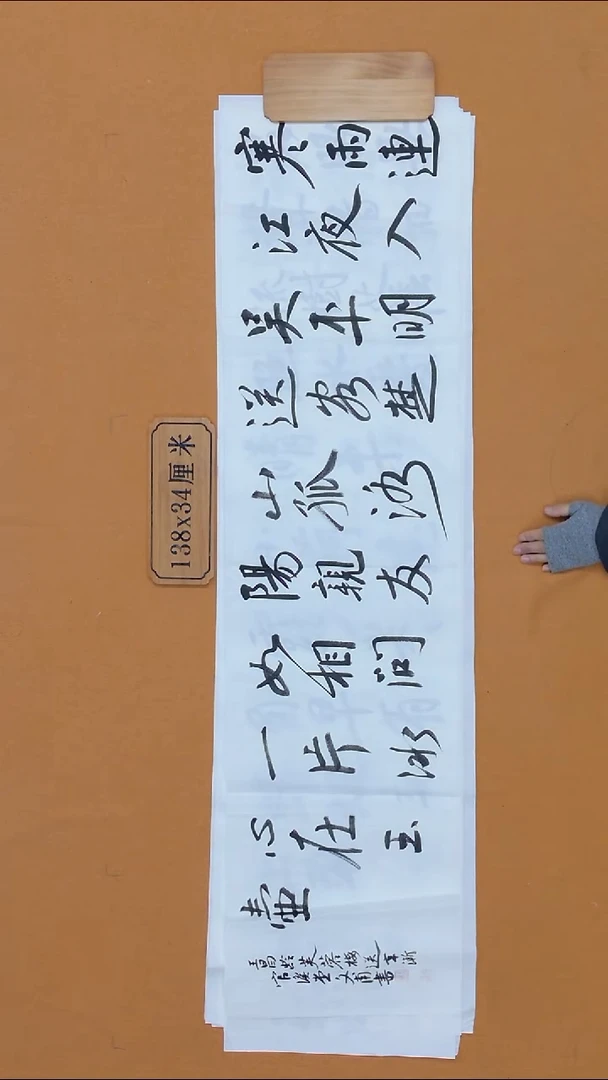 寒雨連
江夜入
吴平明
送客楚
山孤洛
陽親友
如相問
一片冰
心在玉
壶
王昌龄芙蓉楼送辛渐
書
138x34厘米